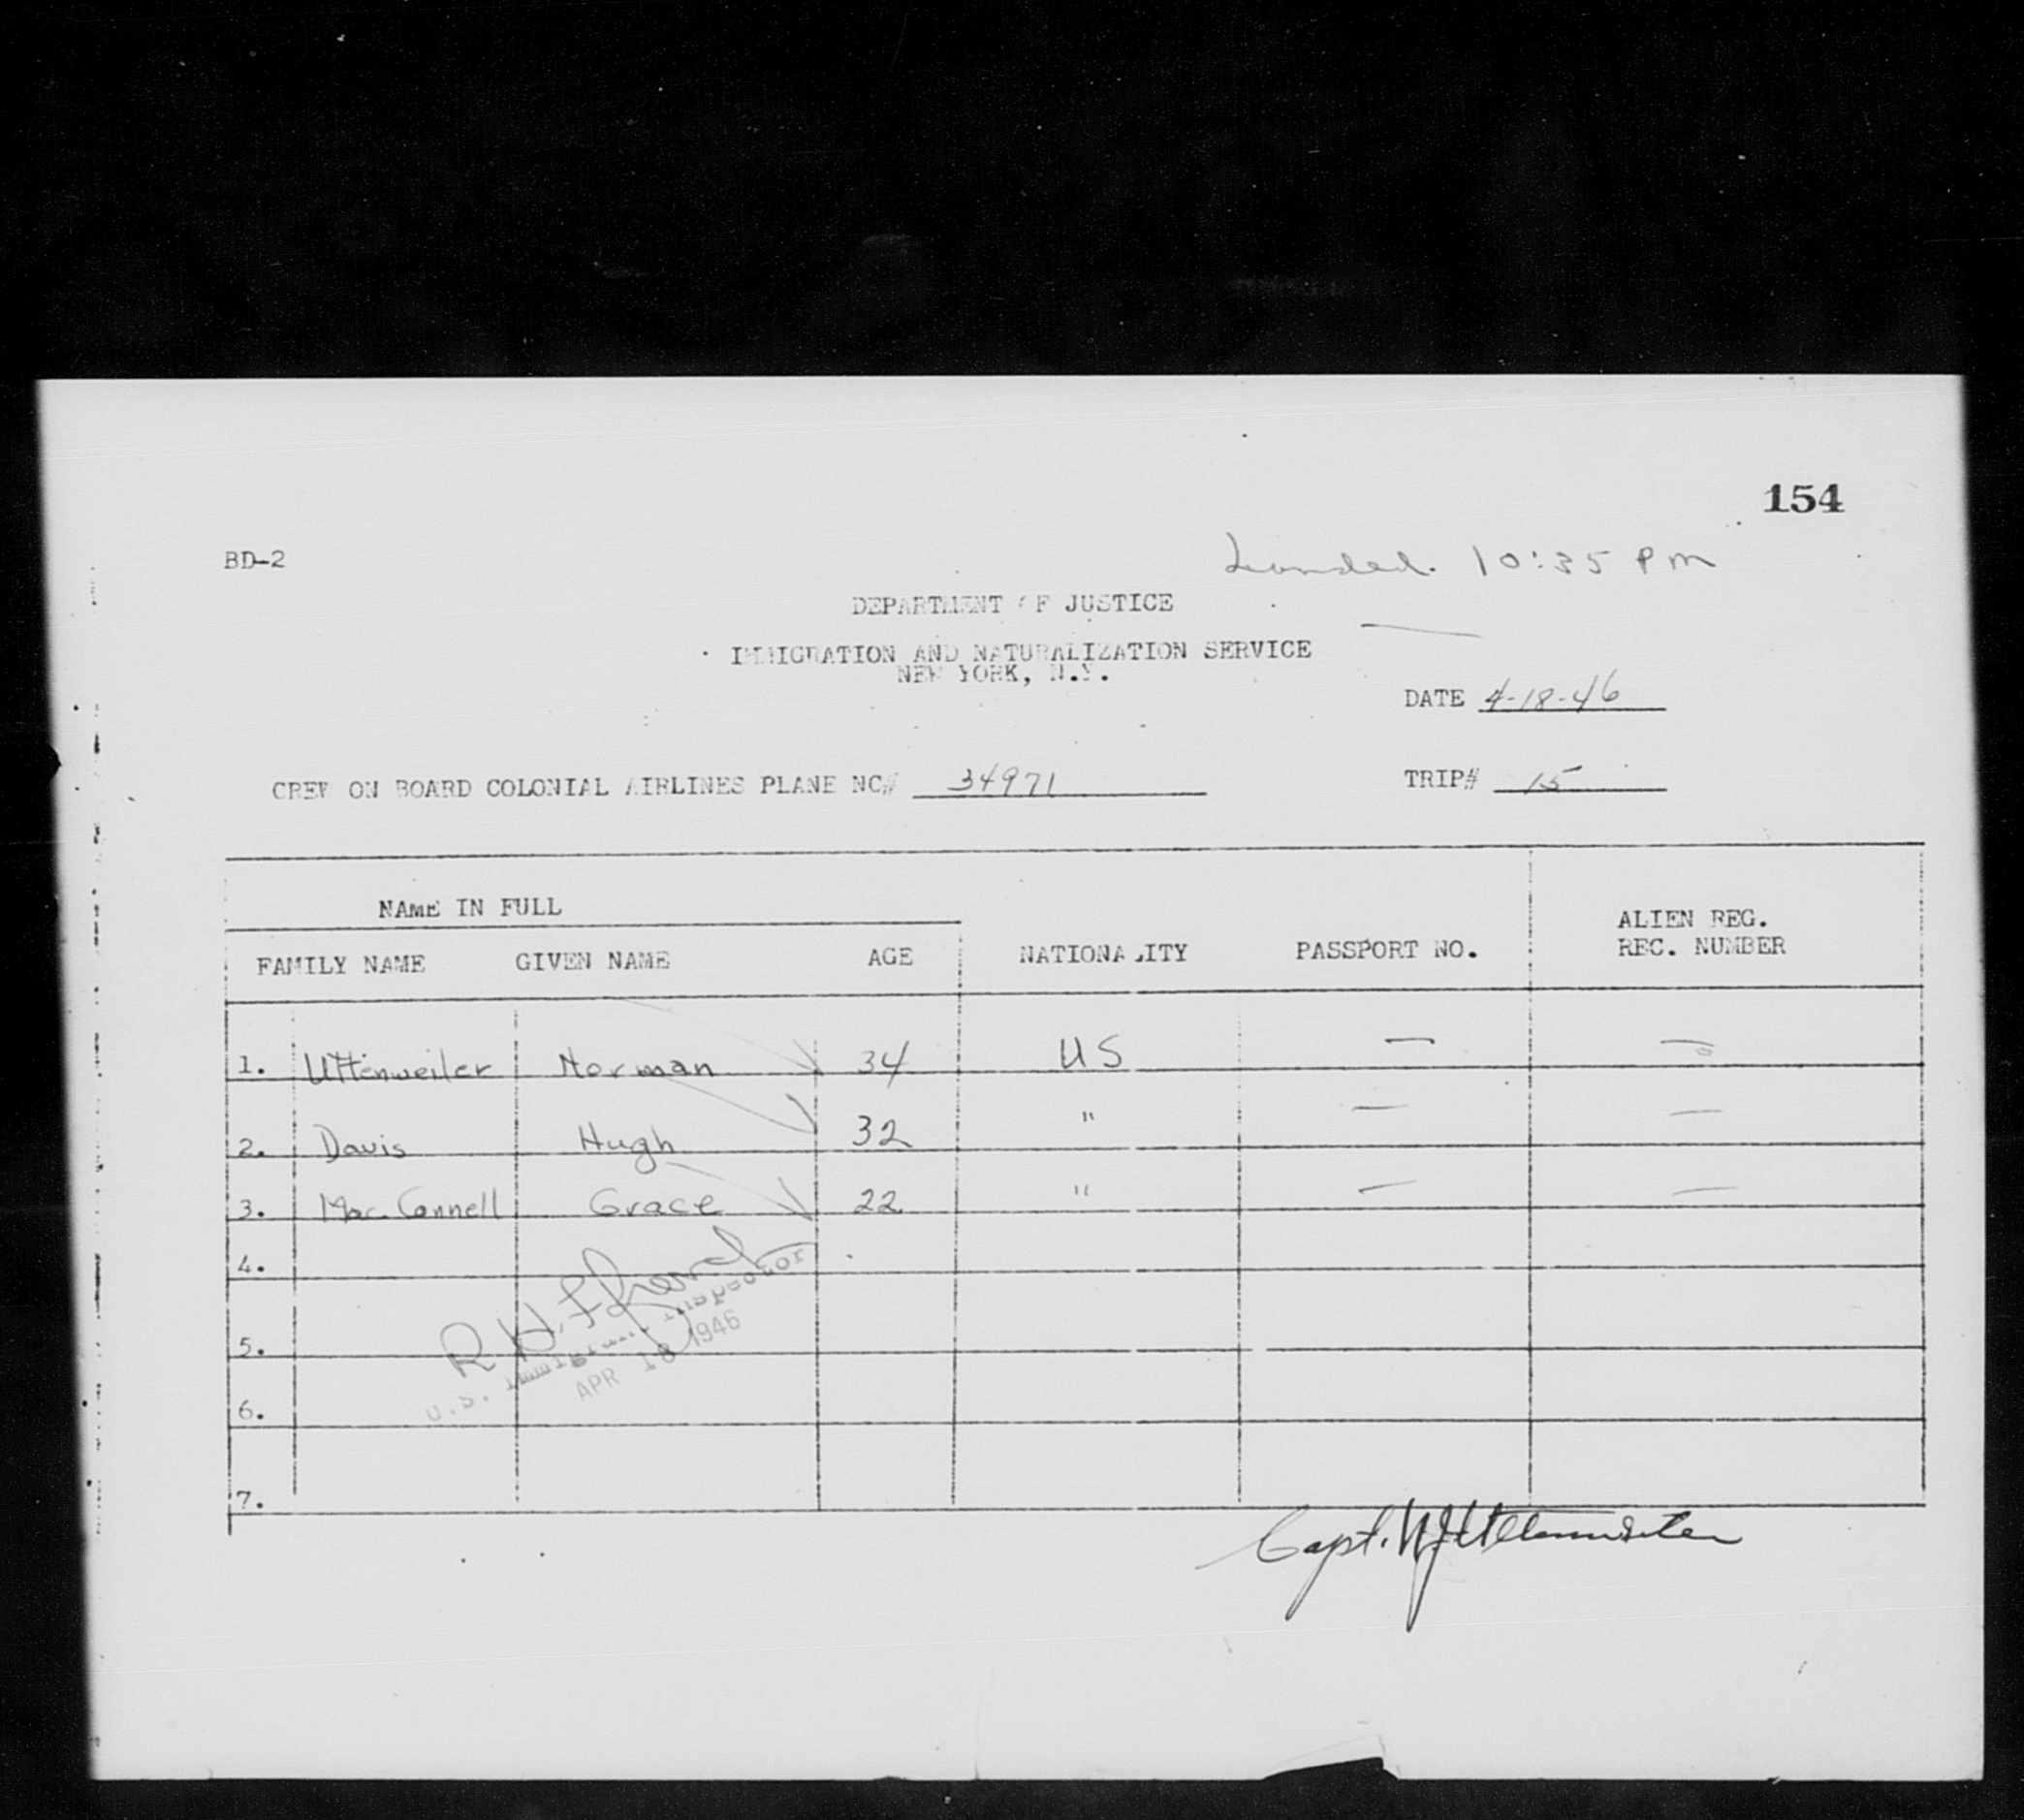 154
BD-2
Landed. 10:35 PM
DEPARTMENT OF JUSTICE
IMMIGRATION AND NATURALIZATION SERVICE
NEW YORK, N.Y.
DATE 4-18-46
CREW ON BOARD COLONIAL AIRLINES PLANE NC# 34971 TRIP# 15
NAME IN FULL
FAMILY NAME GIVEN NAME AGE NATIONALITY PASSPORT NO. ALIEN REG. REC. NUMBER
1. Uttenweiler Norman 34 US — —
2. Davis Hugh 32 " — —
3. Mac Connell Grace 22 " — —
4.
5.
6.
7.
R. H.
U.S. Immigrant Inspector
APR 18 1946
Capt. N J Uttenweiler